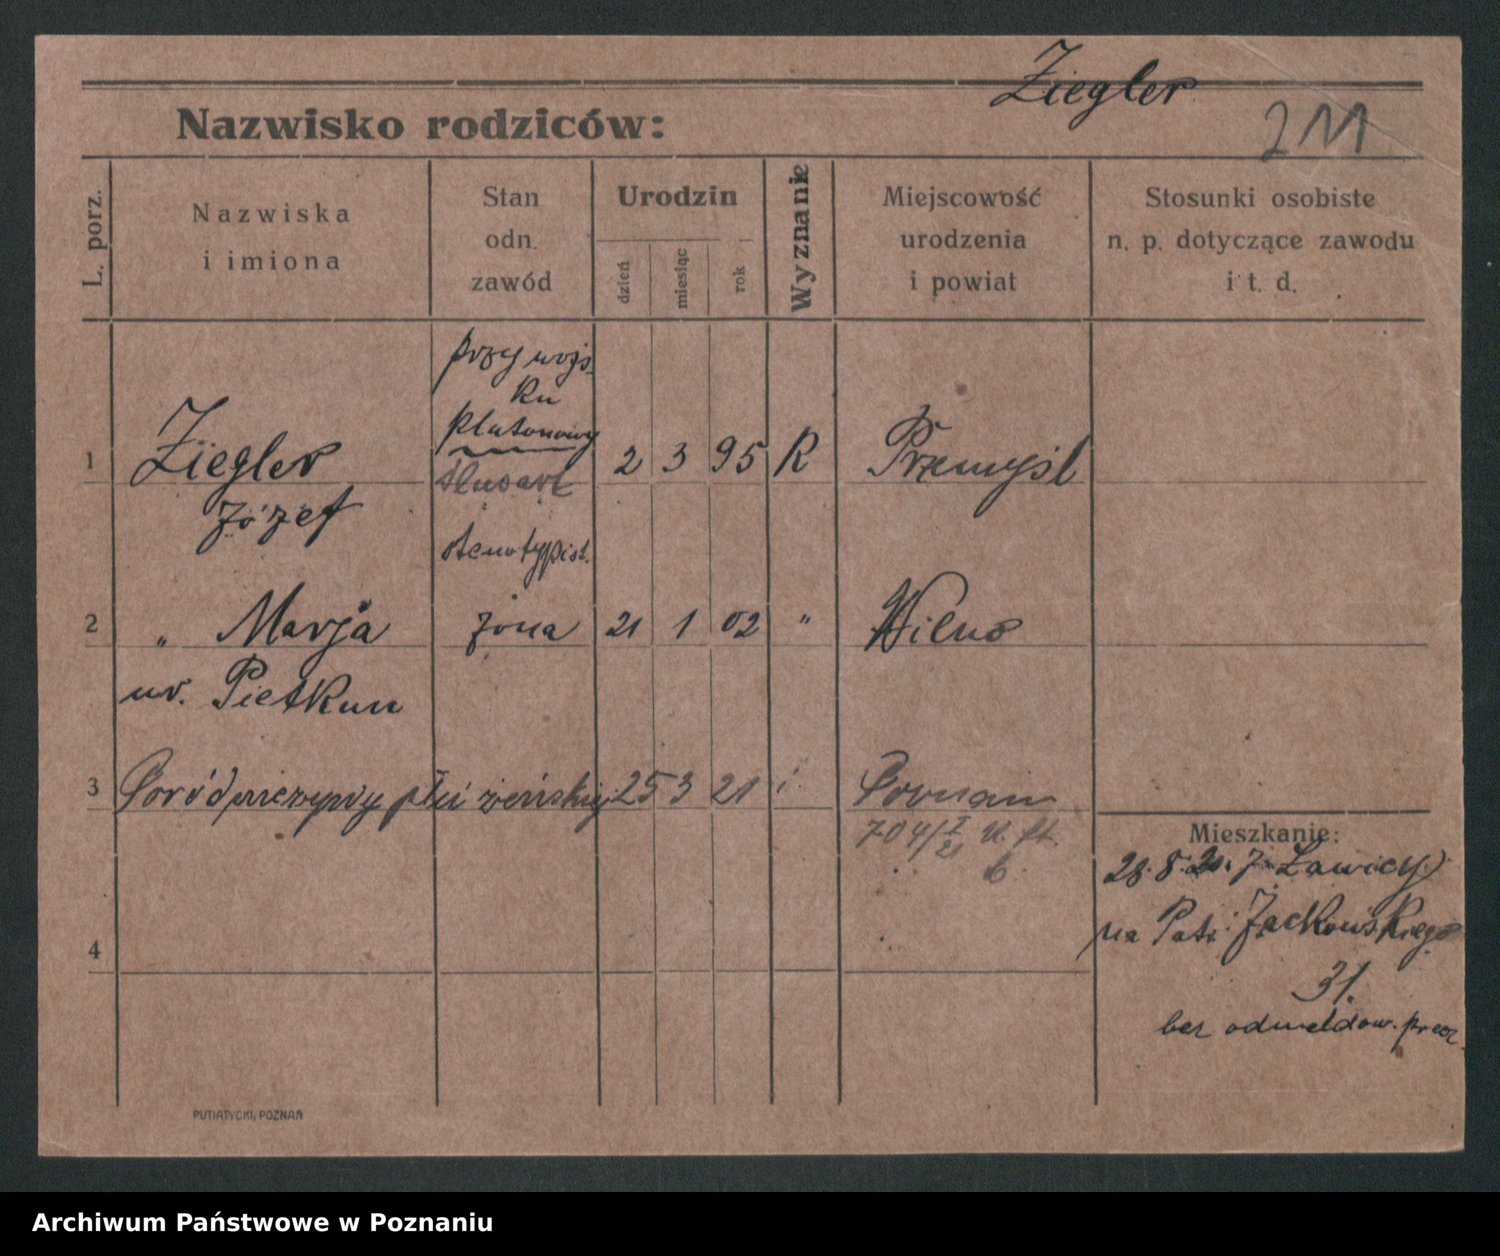 Ziegler
Nazwisko rodziców:
211
L. porz.
Nazwiska
i imiona
Stan
odn.
zawód
Urodzin
dzień
miesiąc
rok
Wyznanie
Miejscowość
urodzenia
i powiat
Stosunki osobiste
n. p. dotyczące zawodu
i t. d.
przy wojs-
ku
plutonowy
1 Ziegler ślusarz 2 3 95 R Przemyśl
Józef
stenotypist.
2 „ Marja żona 21 1 02 " Wilno
ur. Pietkun
3 Poród nieżywy płci żeńskiej 25 3 21 Poznań
704/I
21
Mieszkanie:
28.8.20. z Ławicy)
na Patr. Jackowskiego
31.
bez odmeldow. przez
4
PUTIATYCKI, POZNAŃ
Archiwum Państwowe w Poznaniu